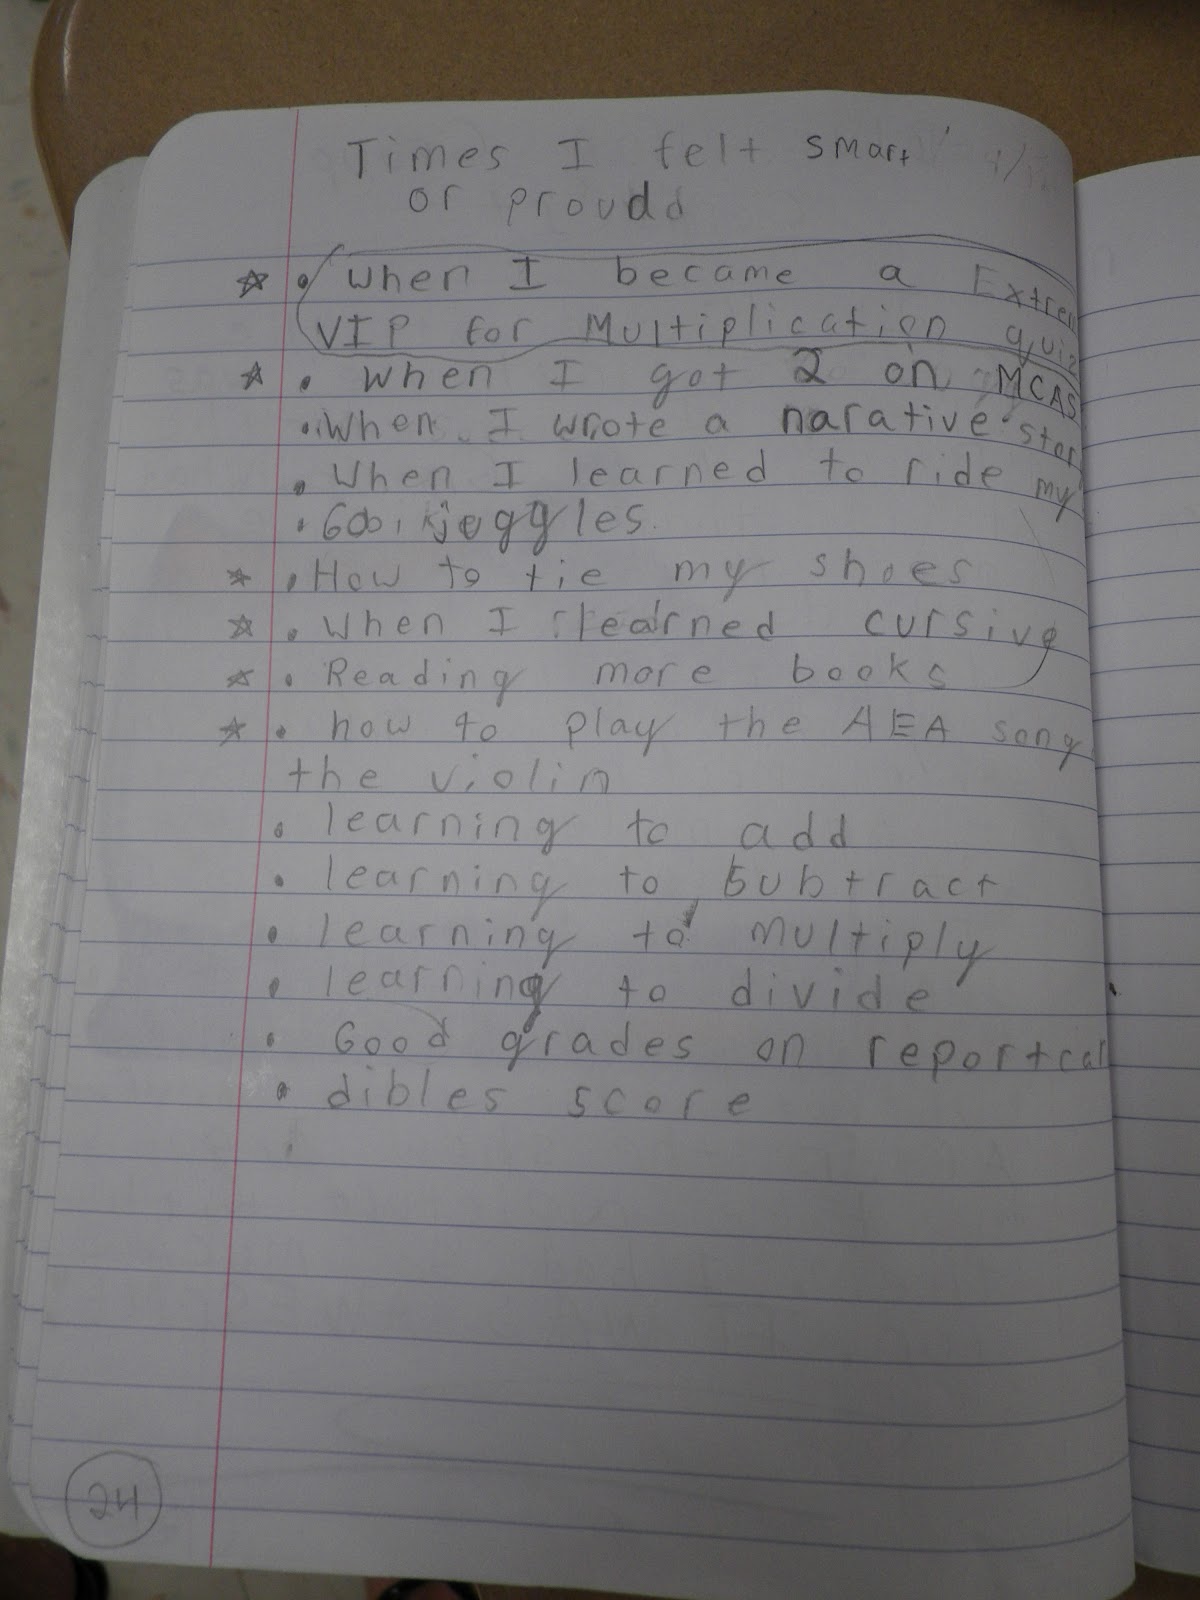 Times I felt smart
or proudd
☆ • when I became a Extrem
VIP for Multiplication quiz
☆ • when I got 2 on MCAS
• When I wrote a narative stor
• When I learned to ride my
•
☆ • How to tie my shoes
☆ • when I learned cursive
☆ • Reading more books
☆ • how to play the AEA song
the violin
• learning to add
• learning to subtract
• learning to multiply
• learning to divide
• Good grades on reportcar
• dibles score
24